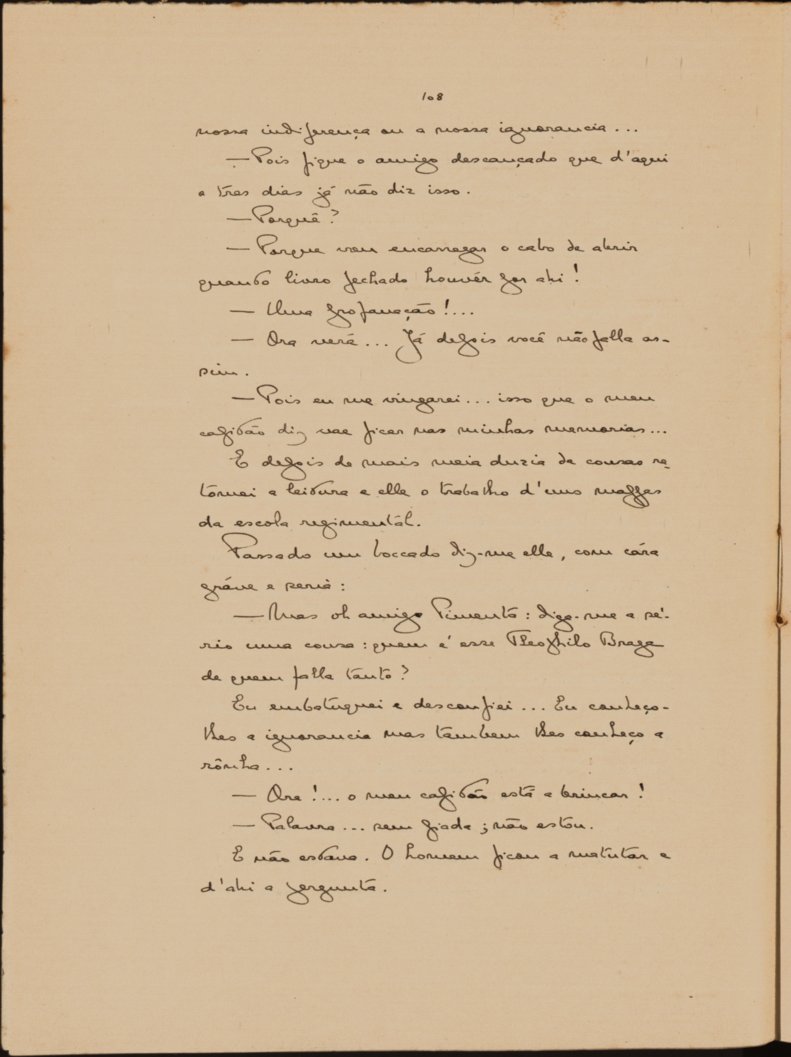 108
nossa indiferença ou a nossa ignorancia...
— Pois fique o amigo descançado que d'aqui
a tres dias já não diz isso.
— Porquê?
— Porque vou encarregar o cabo de abrir
quanto livro fechado houvér por ahi!
— Uma profanação!...
— Ora verá... Já depois você não falla as-
sim.
— Pois eu me vingarei... isso que o meu
capitão diz vae ficar nas minhas memorias...
E depois de mais meia duzia de cousas re-
tomei a leitura e elle o trabalho d'uns mappas
da escola regimentál.
Passado um boccado diz-me elle, com cára
gráve e seria:
— Mas oh amigo Pimenta: diga-me a sé-
rio uma cousa: quem é esse Theophilo Braga
de quem falla tanto?
Eu embatuquei e desconfiei... Eu conheço-
lhes a ignorancia mas tambem lhes conheço a
rônha...
— Ora!... o meu capitão está a brincar!
— Palavra... sem piada; não estou.
E não estava. O homem ficou a matutar e
d'ahi a pergunta.